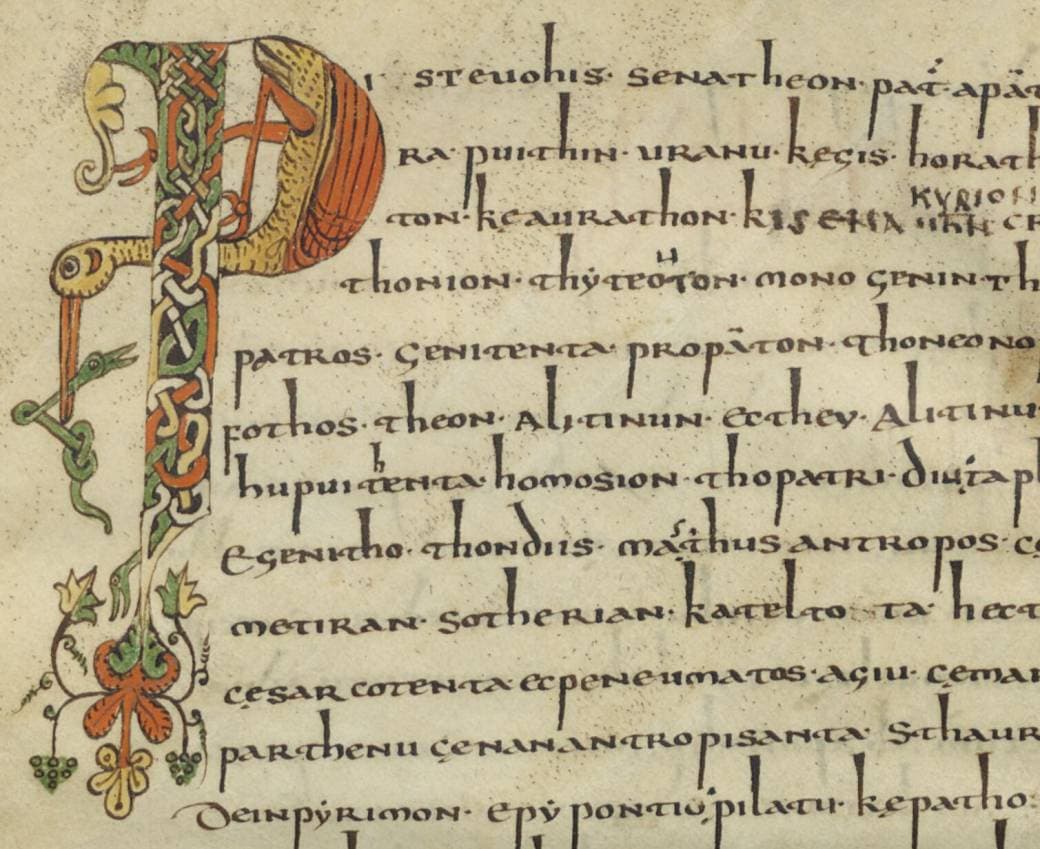 Pi stevohis· senatheon· pat·apat
ra· puithin· uranu· kęgis· horath
ton· kęaurathon· kisena kyrion cr
thonion· thẏteoton· mono genin·th
patros· genitenta· propaton· thoneono
fothos· theon· alitinun· ecthev· alitinu
hupuithenta· homosion· thopatri· diuta p
Egenitho· thondiis· masthus antropos· c
metiran· sotherian· katelto ta· hect
cęsar cotenta ecpeneumatos· agiu· cęmar
parthenu cenanantropisanta· sthaur
deinpẏrimon· epẏ pontiu pilatu· kępatho·